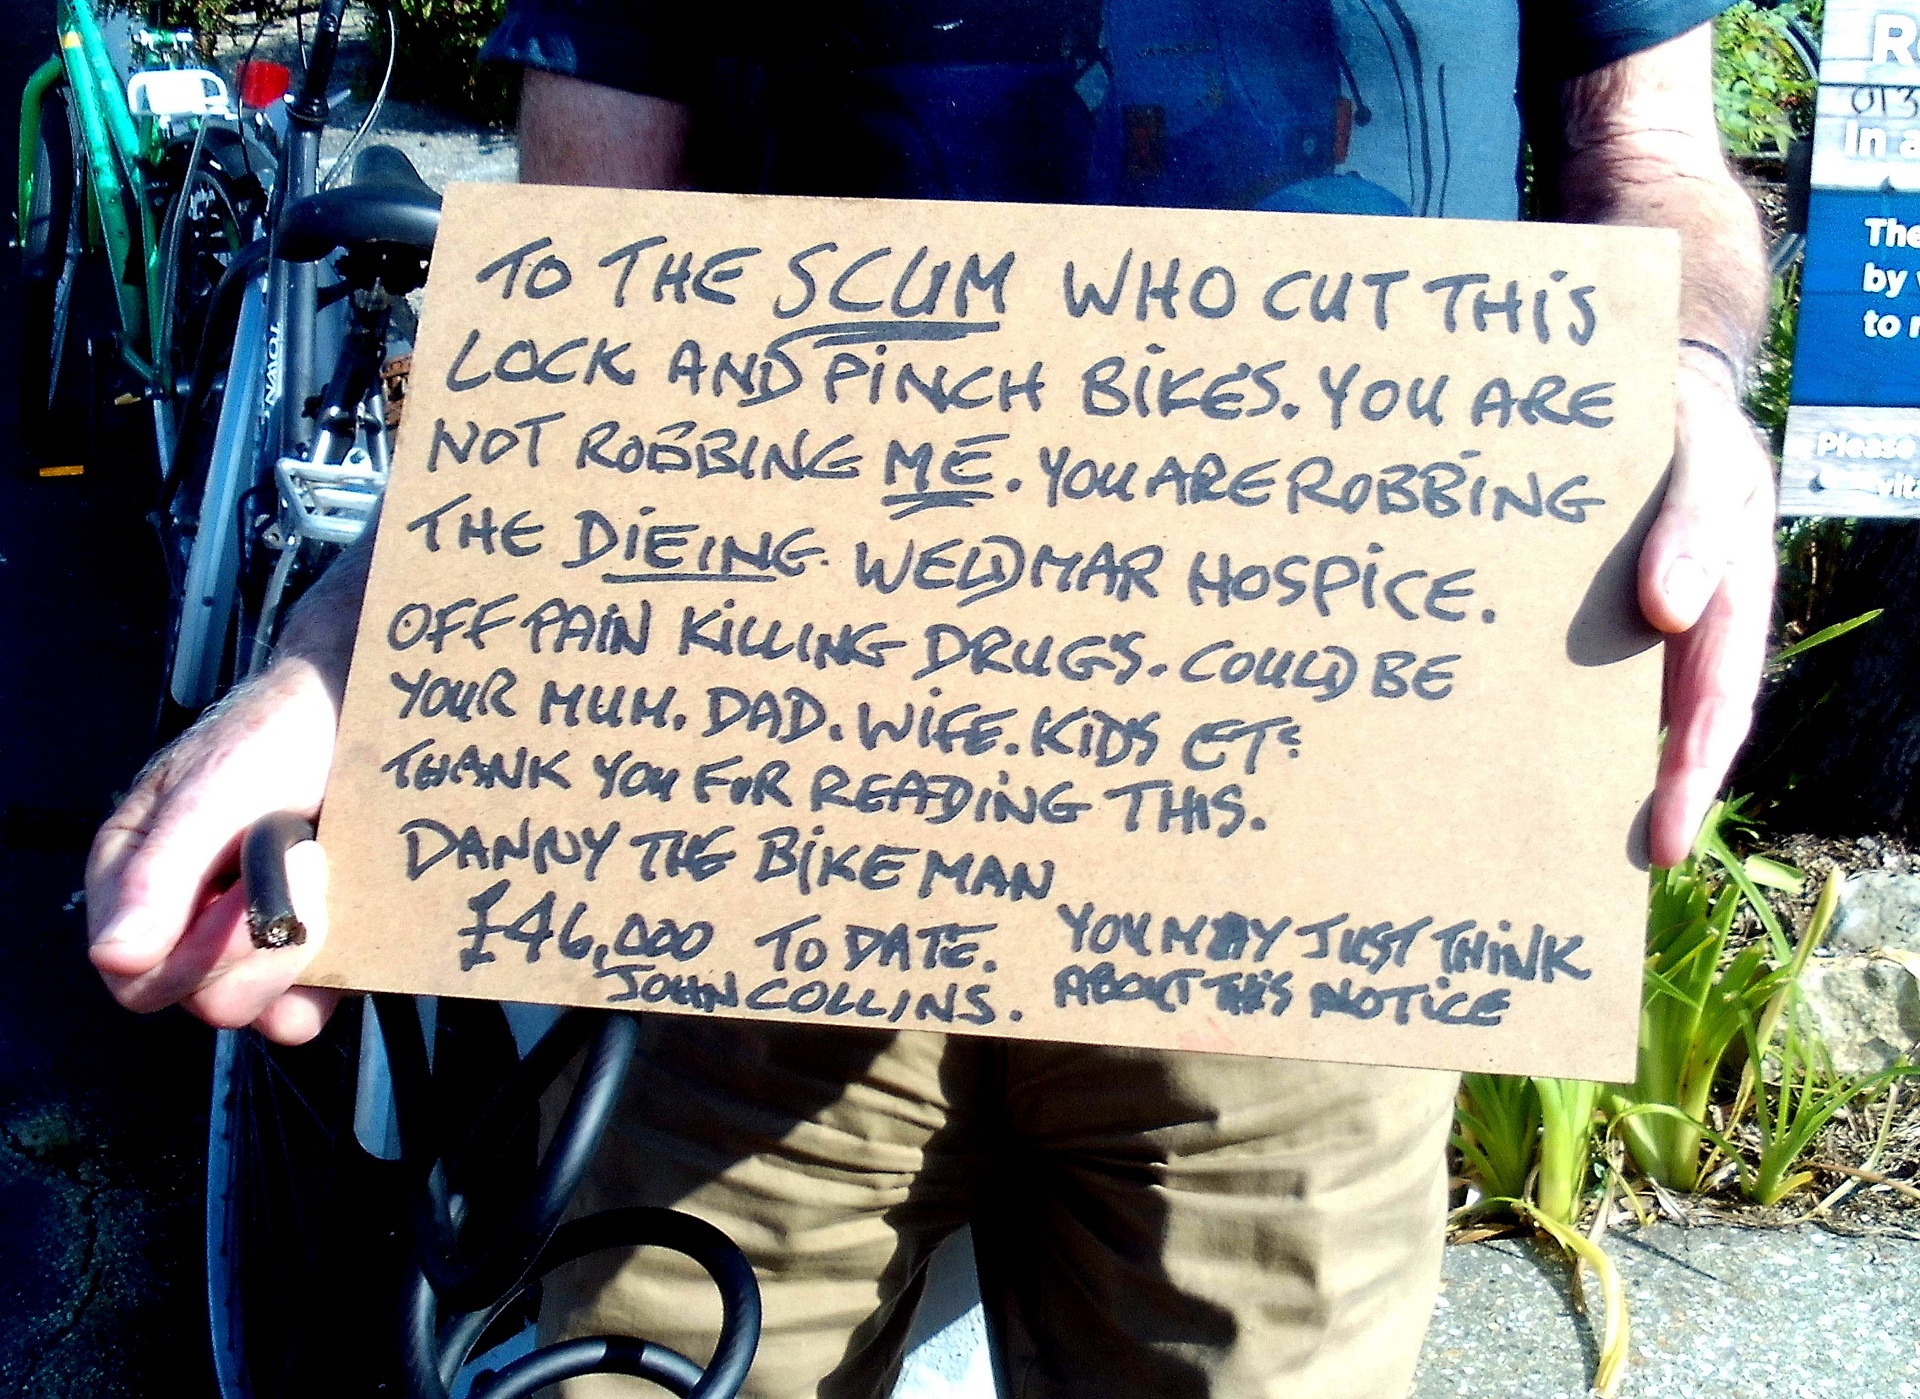 TO THE SCUM WHO CUT THiS
LOCK AND PiNCH BiKE'S. YOU ARE
NOT ROBBING ME. YOU ARE ROBBING
THE DiEING. WELDMAR HOSPiCE.
OFF PAiN KiLLING DRUG'S. COULD BE
YOUR MUM. DAD. WiFE. KiD'S ETC
THANK YOU FOR READiNG THIS.
DANNY THE BiKE MAN
£46,000 TO DATE.
JOHN COLLINS.
YOU MAY JUST THiNK
ABOUT THIS NOTiCE
TOWN
R
013
In a
The
by
to
Please